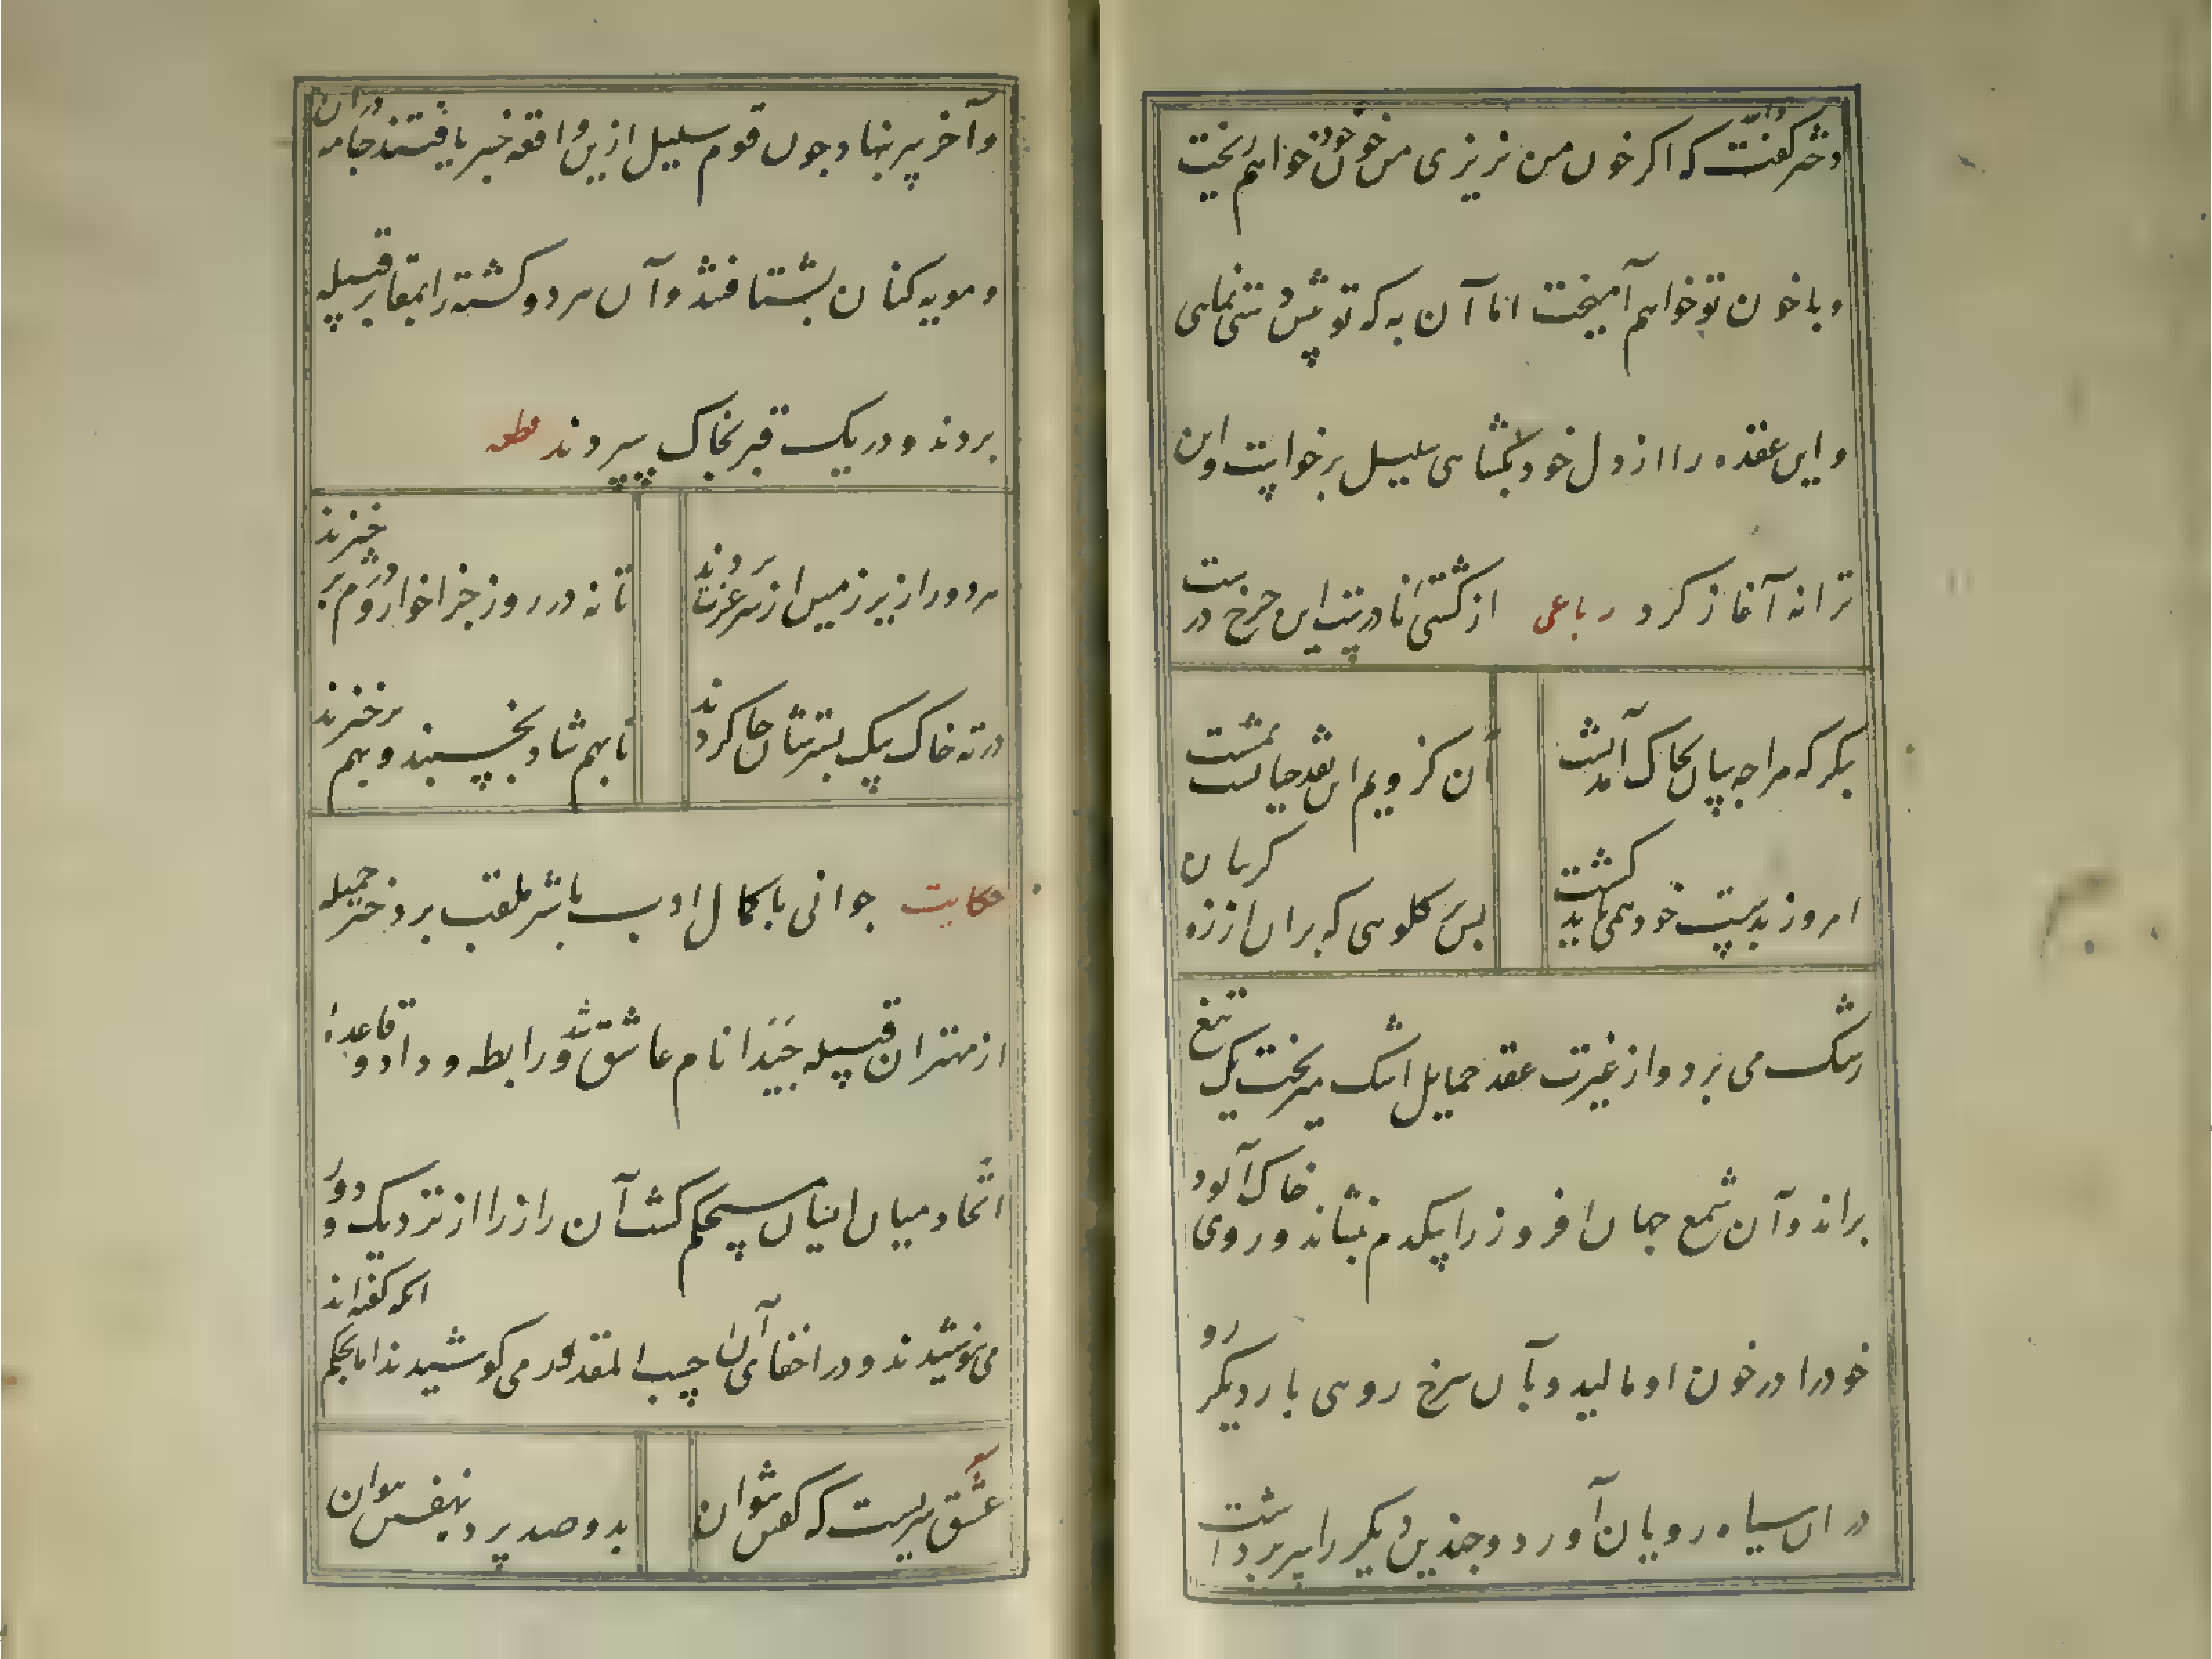 دختر گفت و الله که اکر خون من نریزی من خون خود خواهم ریخت
و با خون تو خواهم آمیخت اما آن به که تو پیش دستی نمایی
و این عقده را از دل خود بکشایی سلیل برخواست و این
ترانه آغاز کرد رباعی از کشتی ما درین این چرخ درست
بنکر که مرا چه سان بخاک آمد پشت آن کز ویم این نقد حیاتست بمشت
امروز بدست خود همی باید کشت پس کلویی که بران از زه کریبان
رشک می برد و از غیرت عقد حمایل اشک میریخت یک تیغ
براند و آن شمع جهان افروز را بیکدم بنشاند و روی خاک آلود
خود را در خون او مالید و بآن سرخ رویی بار دیکر رو
در آن سیاه رویان آورد و چندین دیکر را سر برداشت
و آخر سر بنهاد و چون قوم سلیل ازین واقعه خبر یافتند جامه دران
و مویه کنان بشتافتند و آن هر دو کشته را بمقابر قبیله
بردند و در یک قبر بخاک سپردند قطعه
هر دو را زیر زمین از سر عزت بردند تا نه در روز جزا خوار و دژم برخیزند
در ته خاک یکی بسترشان جا کردند تا بهم شاد بخسپند و بهم برخیزند
حکایت جوانی با کمال ادب باشتر ملقب بر دختر جمیله
از مهتران قبیله جیدا نام عاشق شد و رابطه و داد و قاعدهٔ
اتحاد میان ایشان مستحکم کشت آن راز را از نزدیک و دور
می پوشیدند و در اخفای آن حسب المقدور می کوشیدند اما بحکم آنکه کفته اند
عشق سریست که کفتن نتوان بدو صد پرده نهفتن نتوان